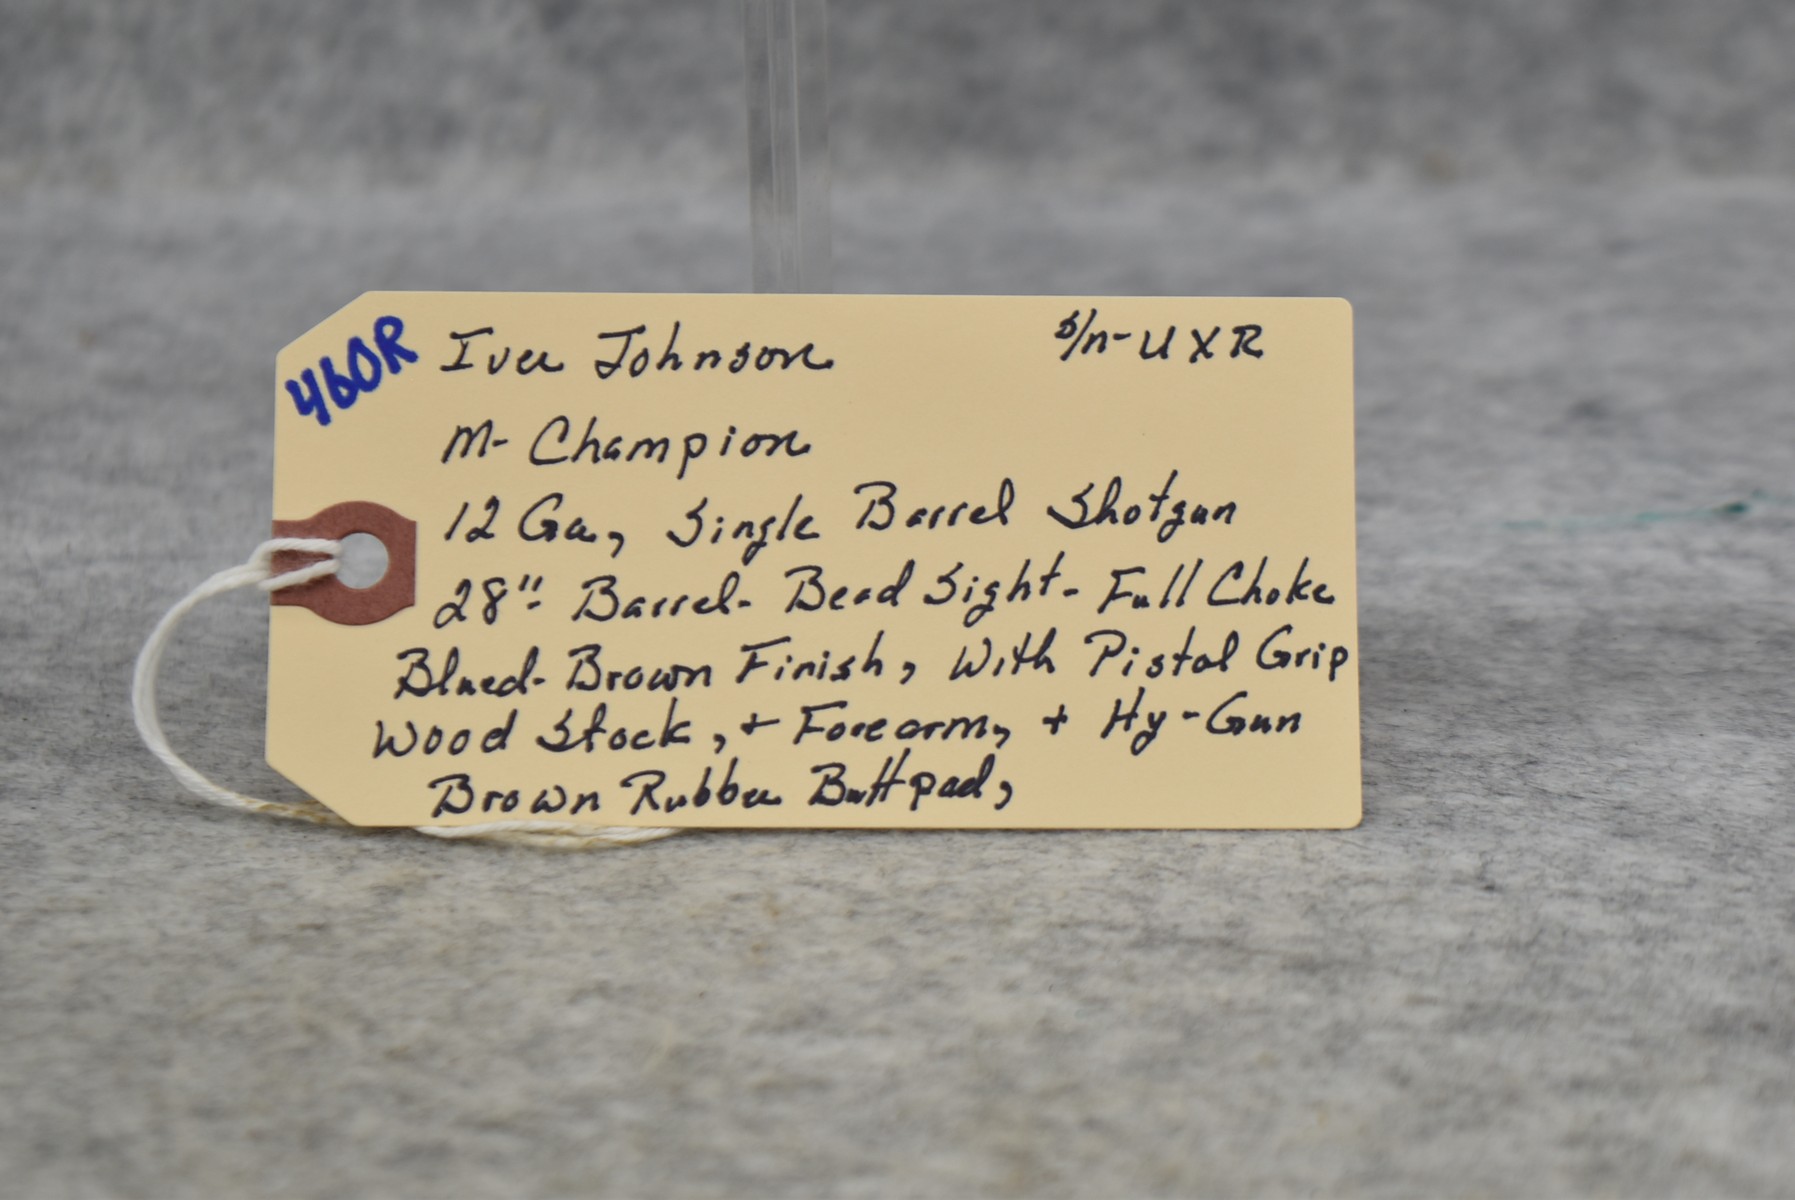 460R
Iver Johnson s/n- UXR
M- Champion
12 Ga, Single Barrel Shotgun
28"- Barrel- Bead Sight- Full Choke
Blued- Brown Finish, With Pistol Grip
Wood Stock, + Forearm, + Hy-Gun
Brown Rubber Buttpad,